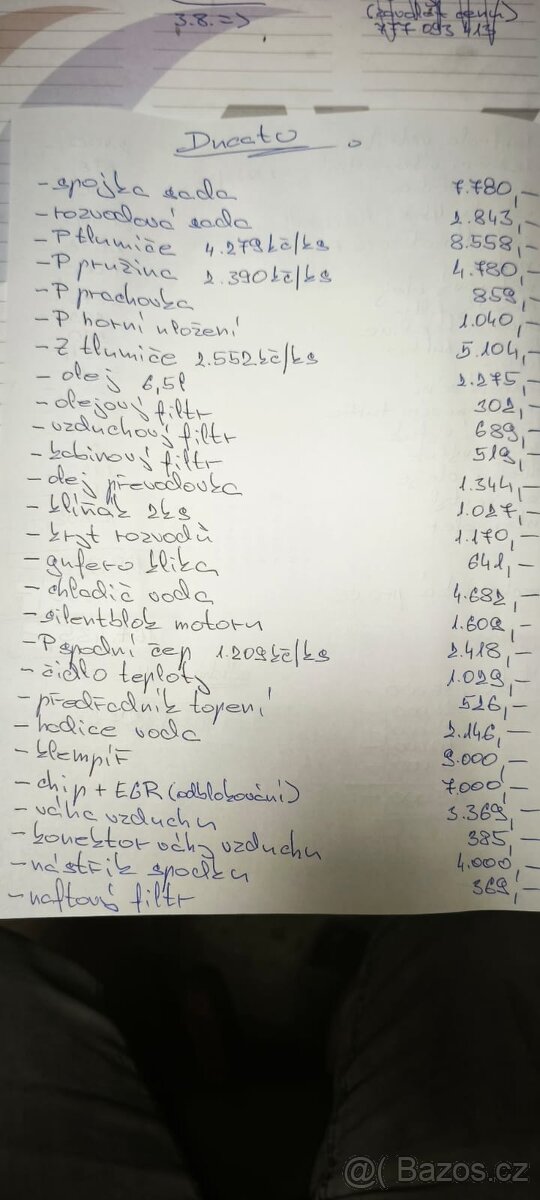 3.8. =>
777 093 413
Ducato
- spojka sada 7.780,-
- rozvodová sada 2.843,-
- P tlumiče 4.279kč/ks 8.558,-
- P pružina 2.390kč/ks 4.780,-
- P prachovka 859,-
- P horní uložení 1.040,-
- Z tlumiče 2.552kč/ks 5.104,-
- olej 6,5l 2.275,-
- olejový filtr 302,-
- vzduchový filtr 689,-
- kabinový filtr 519,-
- olej převodovka 1.344,-
- klíňák 2ks 1.027,-
- kryt rozvodů 1.170,-
- gufero klika 641,-
- chladič voda 4.682,-
- silentblok motoru 1.609,-
- P spodní čep 1.209kč/ks 2.418,-
- čidlo teploty 1.029,-
- předřadník topení 526,-
- hadice voda 2.146,-
- klempíř 9.000,-
- chip + EGR (odblokování) 7.000,-
- váha vzduchu 3.369,-
- konektor váhy vzduchu 385,-
- nástřik spodku 4.000,-
- naftový filtr 369,-
@( Bazos.cz